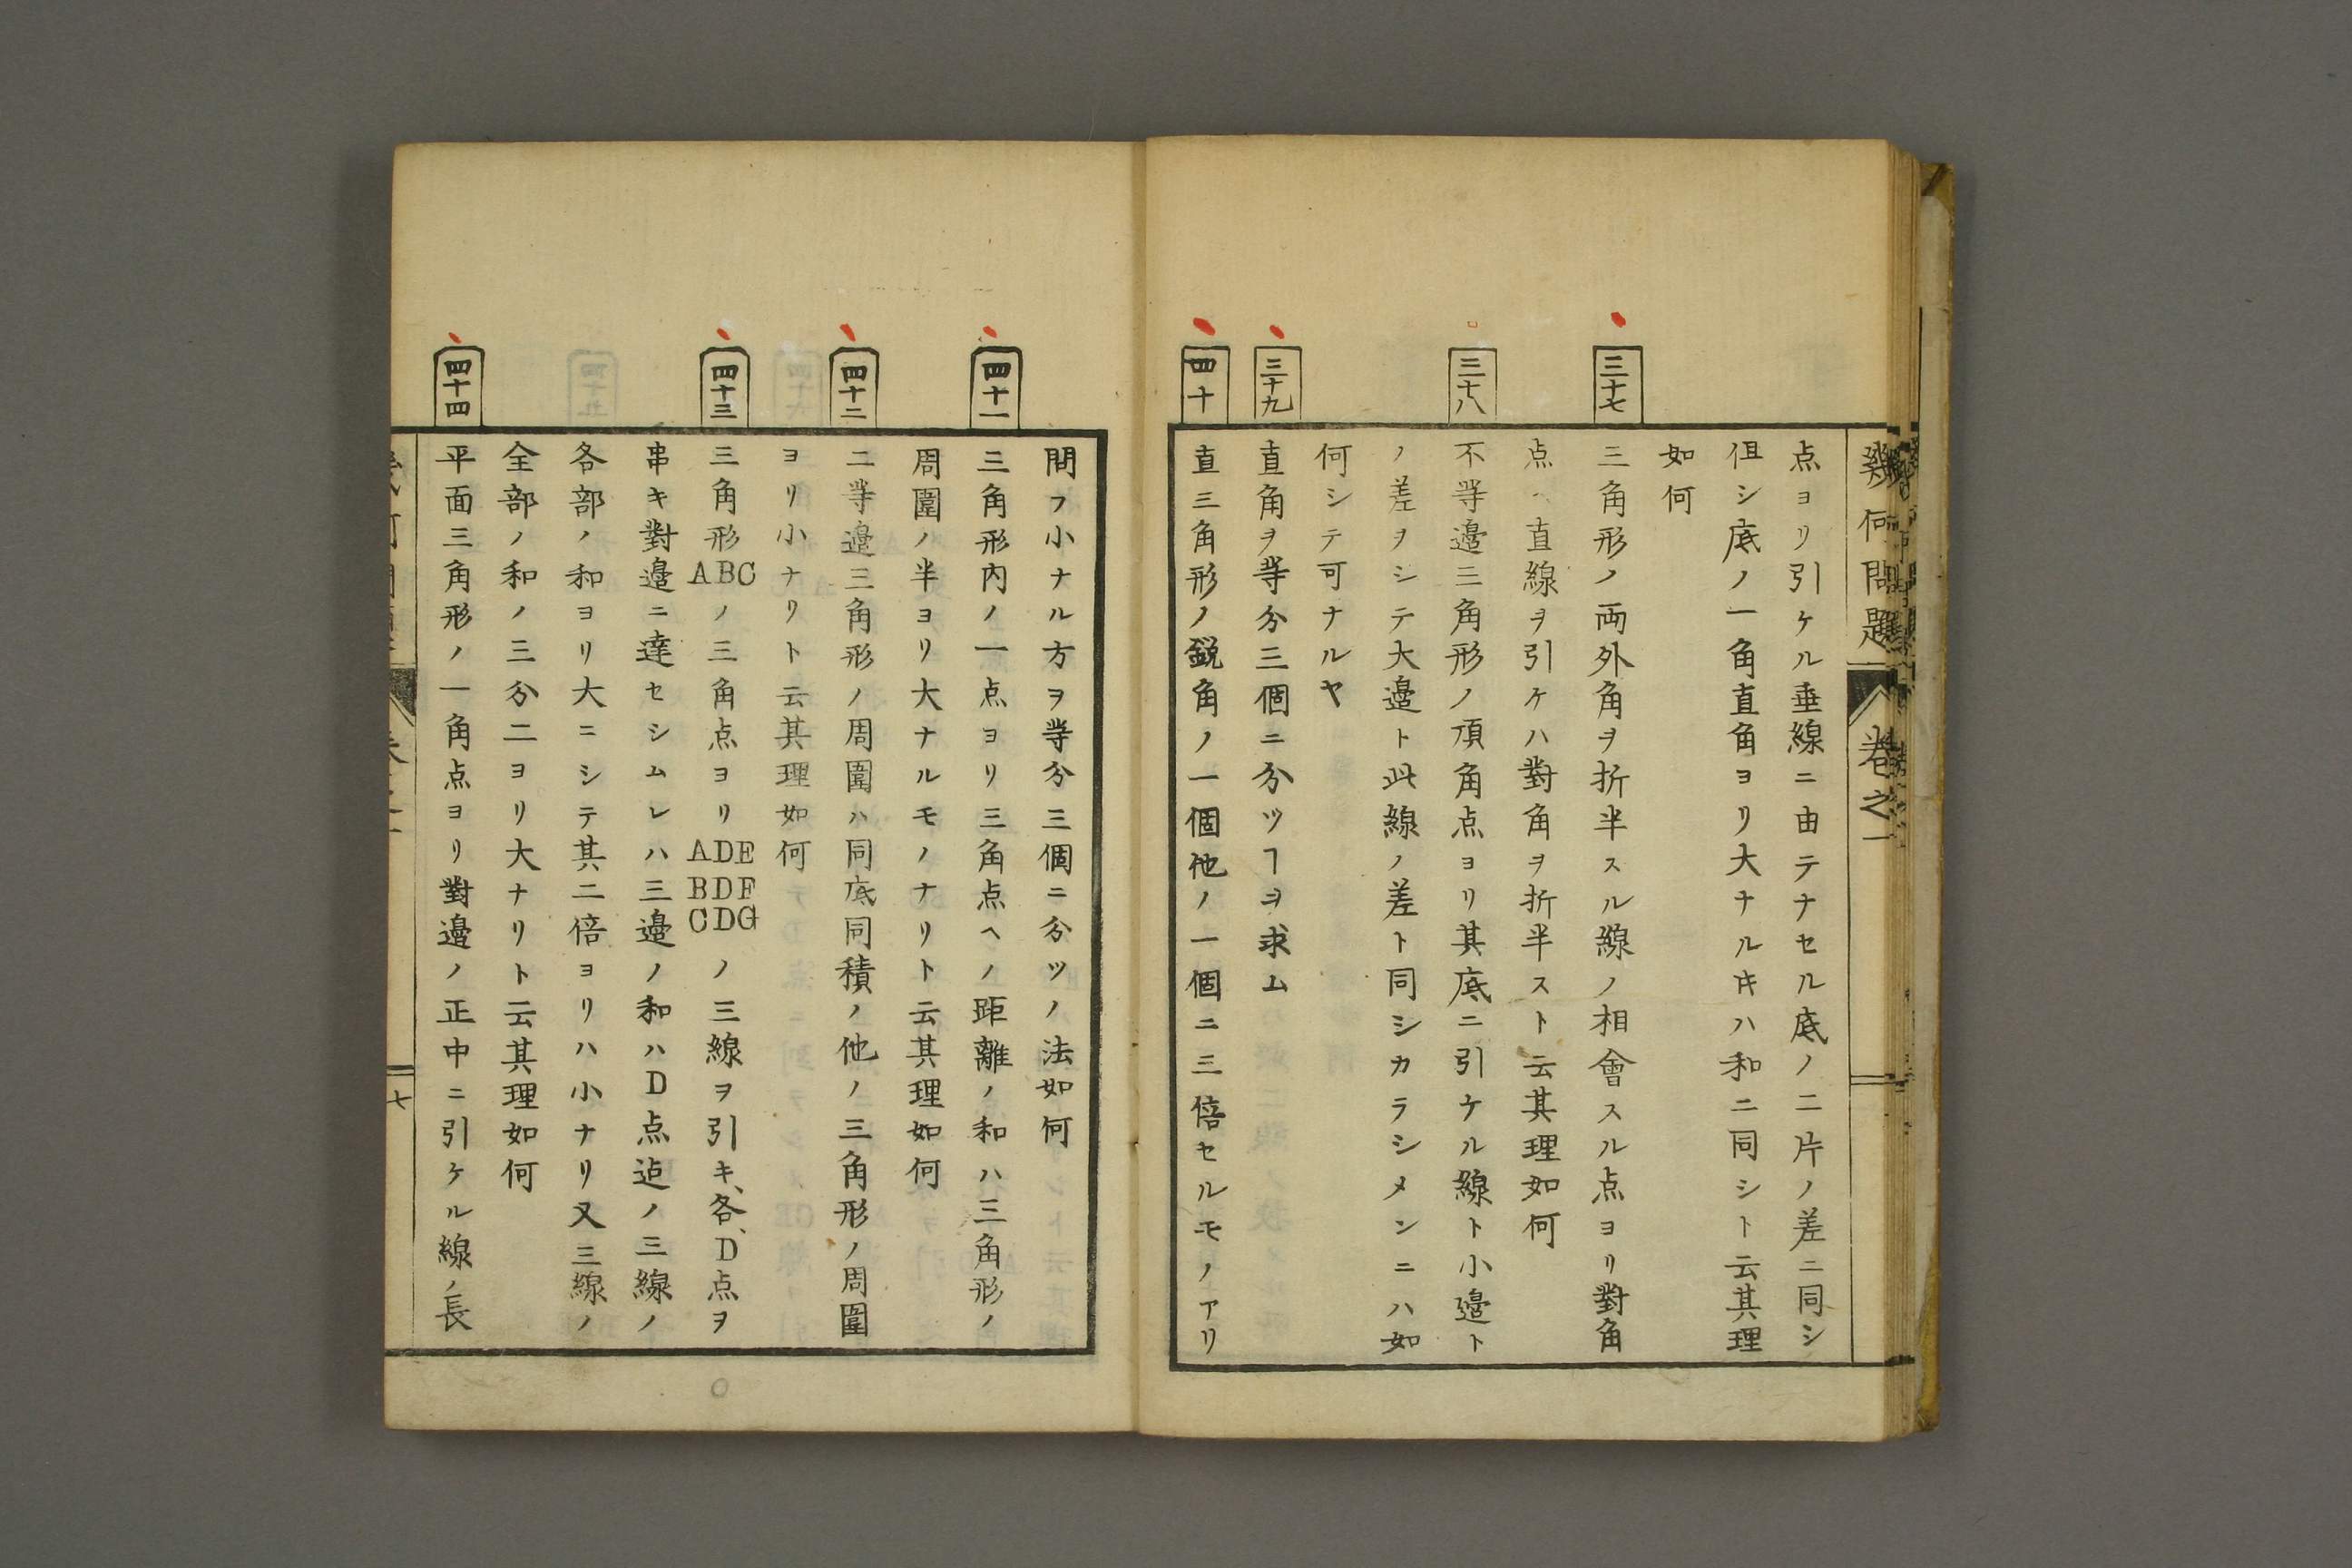 幾何問題 卷之一
点ヨリ引ケル垂線ニ由テナセル底ノ二片ノ差ニ同シ
但シ底ノ一角直角ヨリ大ナル𬼀ハ和ニ同シト云其理
如何
三十七
三角形ノ両外角ヲ折半スル線ノ相會スル点ヨリ對角
点ヘ直線ヲ引ケハ對角ヲ折半スト云其理如何
三十八
不等邉三角形ノ頂角点ヨリ其底ニ引ケル線ト小邉ト
ノ差ヲシテ大邉ト此線ノ差ト同シカラシメンニハ如
何シテ可ナルヤ
三十九
直角ヲ等分三個ニ分ツヿヲ求ム
四十
直三角形ノ鋭角ノ一個他ノ一個ニ三倍セルモノアリ
問フ小ナル方ヲ等分三個ニ分ツノ法如何
四十一
三角形内ノ一点ヨリ三角点ヘノ距離ノ和ハ三角形ノ
周圍ノ半ヨリ大ナルモノナリト云其理如何
四十二
二等邉三角形ノ周圍ハ同底同積ノ他ノ三角形ノ周圍
ヨリ小ナリト云其理如何
四十三
三角形ABCノ三角点ヨリADE BDF CDGノ三線ヲ引キ、各、D点ヲ
串キ對邉ニ達セシムレハ三邉ノ和ハD点迠ノ三線ノ
各部ノ和ヨリ大ニシテ其二倍ヨリハ小ナリ又三線ノ
全部ノ和ノ三分二ヨリ大ナリト云其理如何
四十四
平面三角形ノ一角点ヨリ對邉ノ正中ニ引ケル線ノ長
七